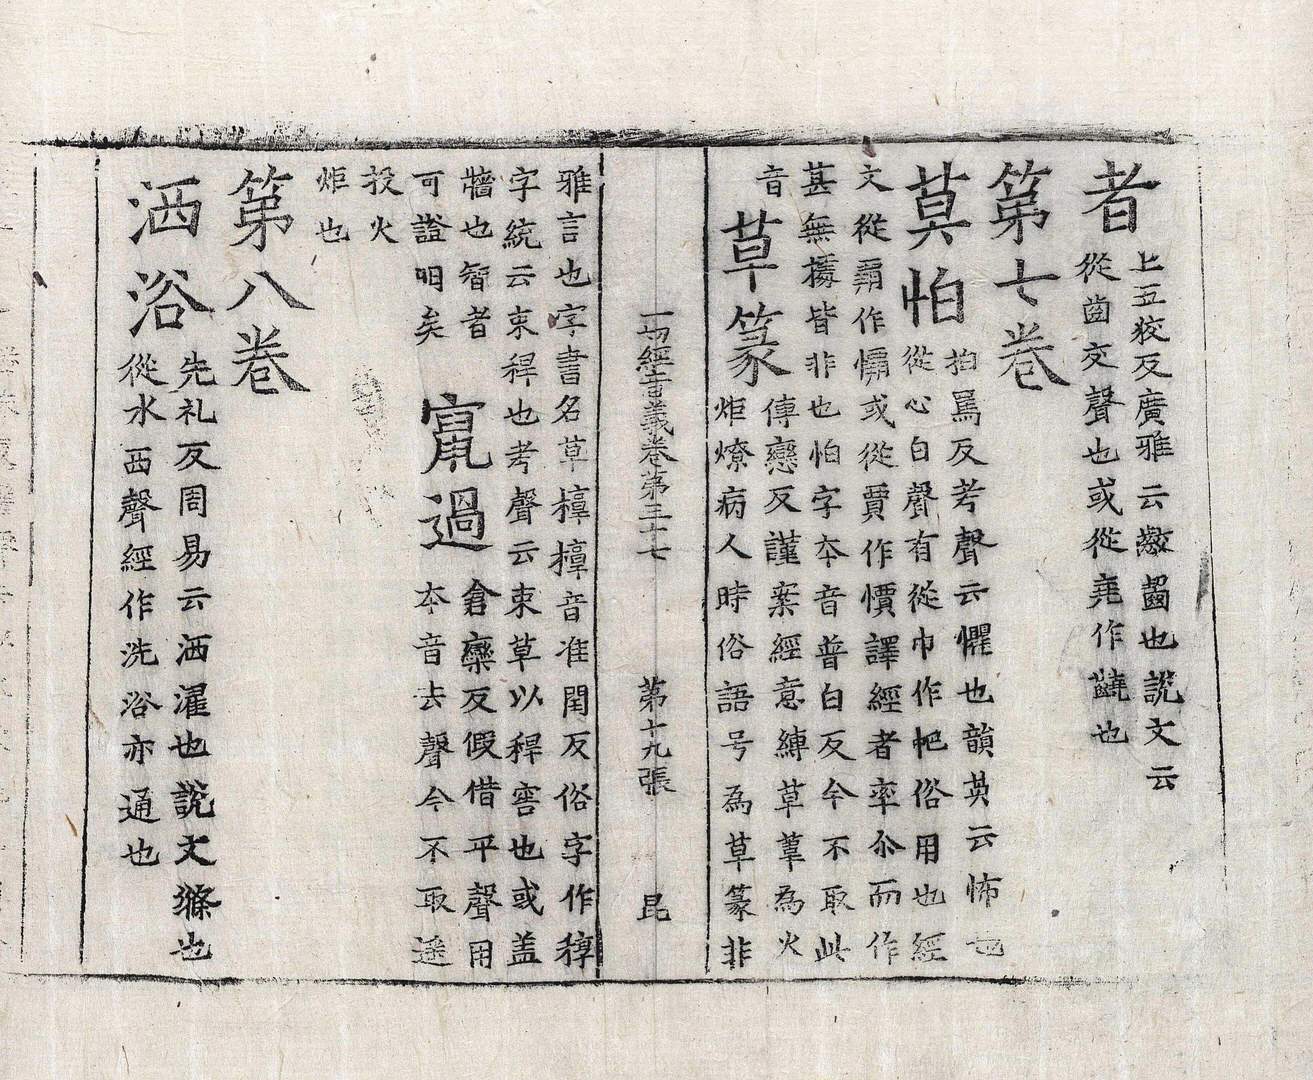 者
上五狡反廣雅云齩齧也說文云
從齒交聲也或從堯作𪙧也
第七卷
莫怕
拍罵反考聲云懼也韻英云怖也
從心白聲有從巾作帊俗用也經
文從覇作㦉或從賈作㥬譯經者率尒而作
甚無據皆非也怕字夲音普白反今不取此
音
草篆
傳戀反謹案經意縛草為火
炬燎病人時俗語号為草篆非
一切經音義卷第三十七 第十九張 昆
雅言也字書名草音准閏反俗字作稕
字統云束稈也考聲云束草以稈窖也或盖
牆也智者
可證明矣
竄過
倉欒反假借平聲用
夲音去聲今不取遥
投火
炬也
第八卷
洒浴
先礼反周易云洒濯也說文滌也
從水西聲經作洗浴亦通也